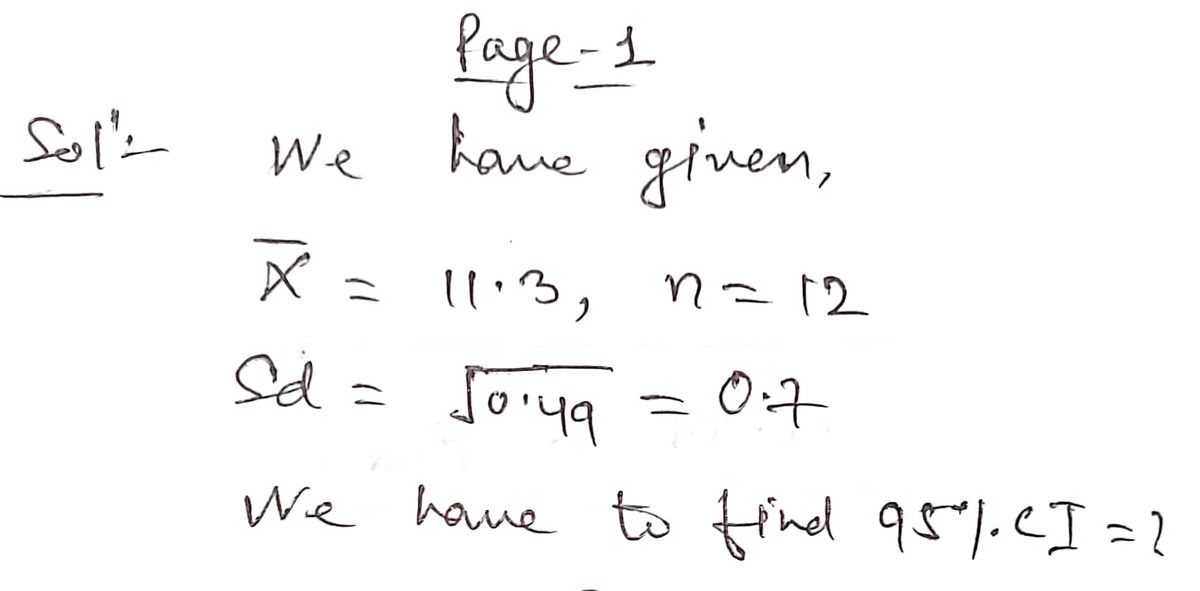 Page-1
Solⁿ:- We have given,
X̅ = 11.3, n = 12
Sd = √0.49 = 0.7
We have to find 95% CI = ?